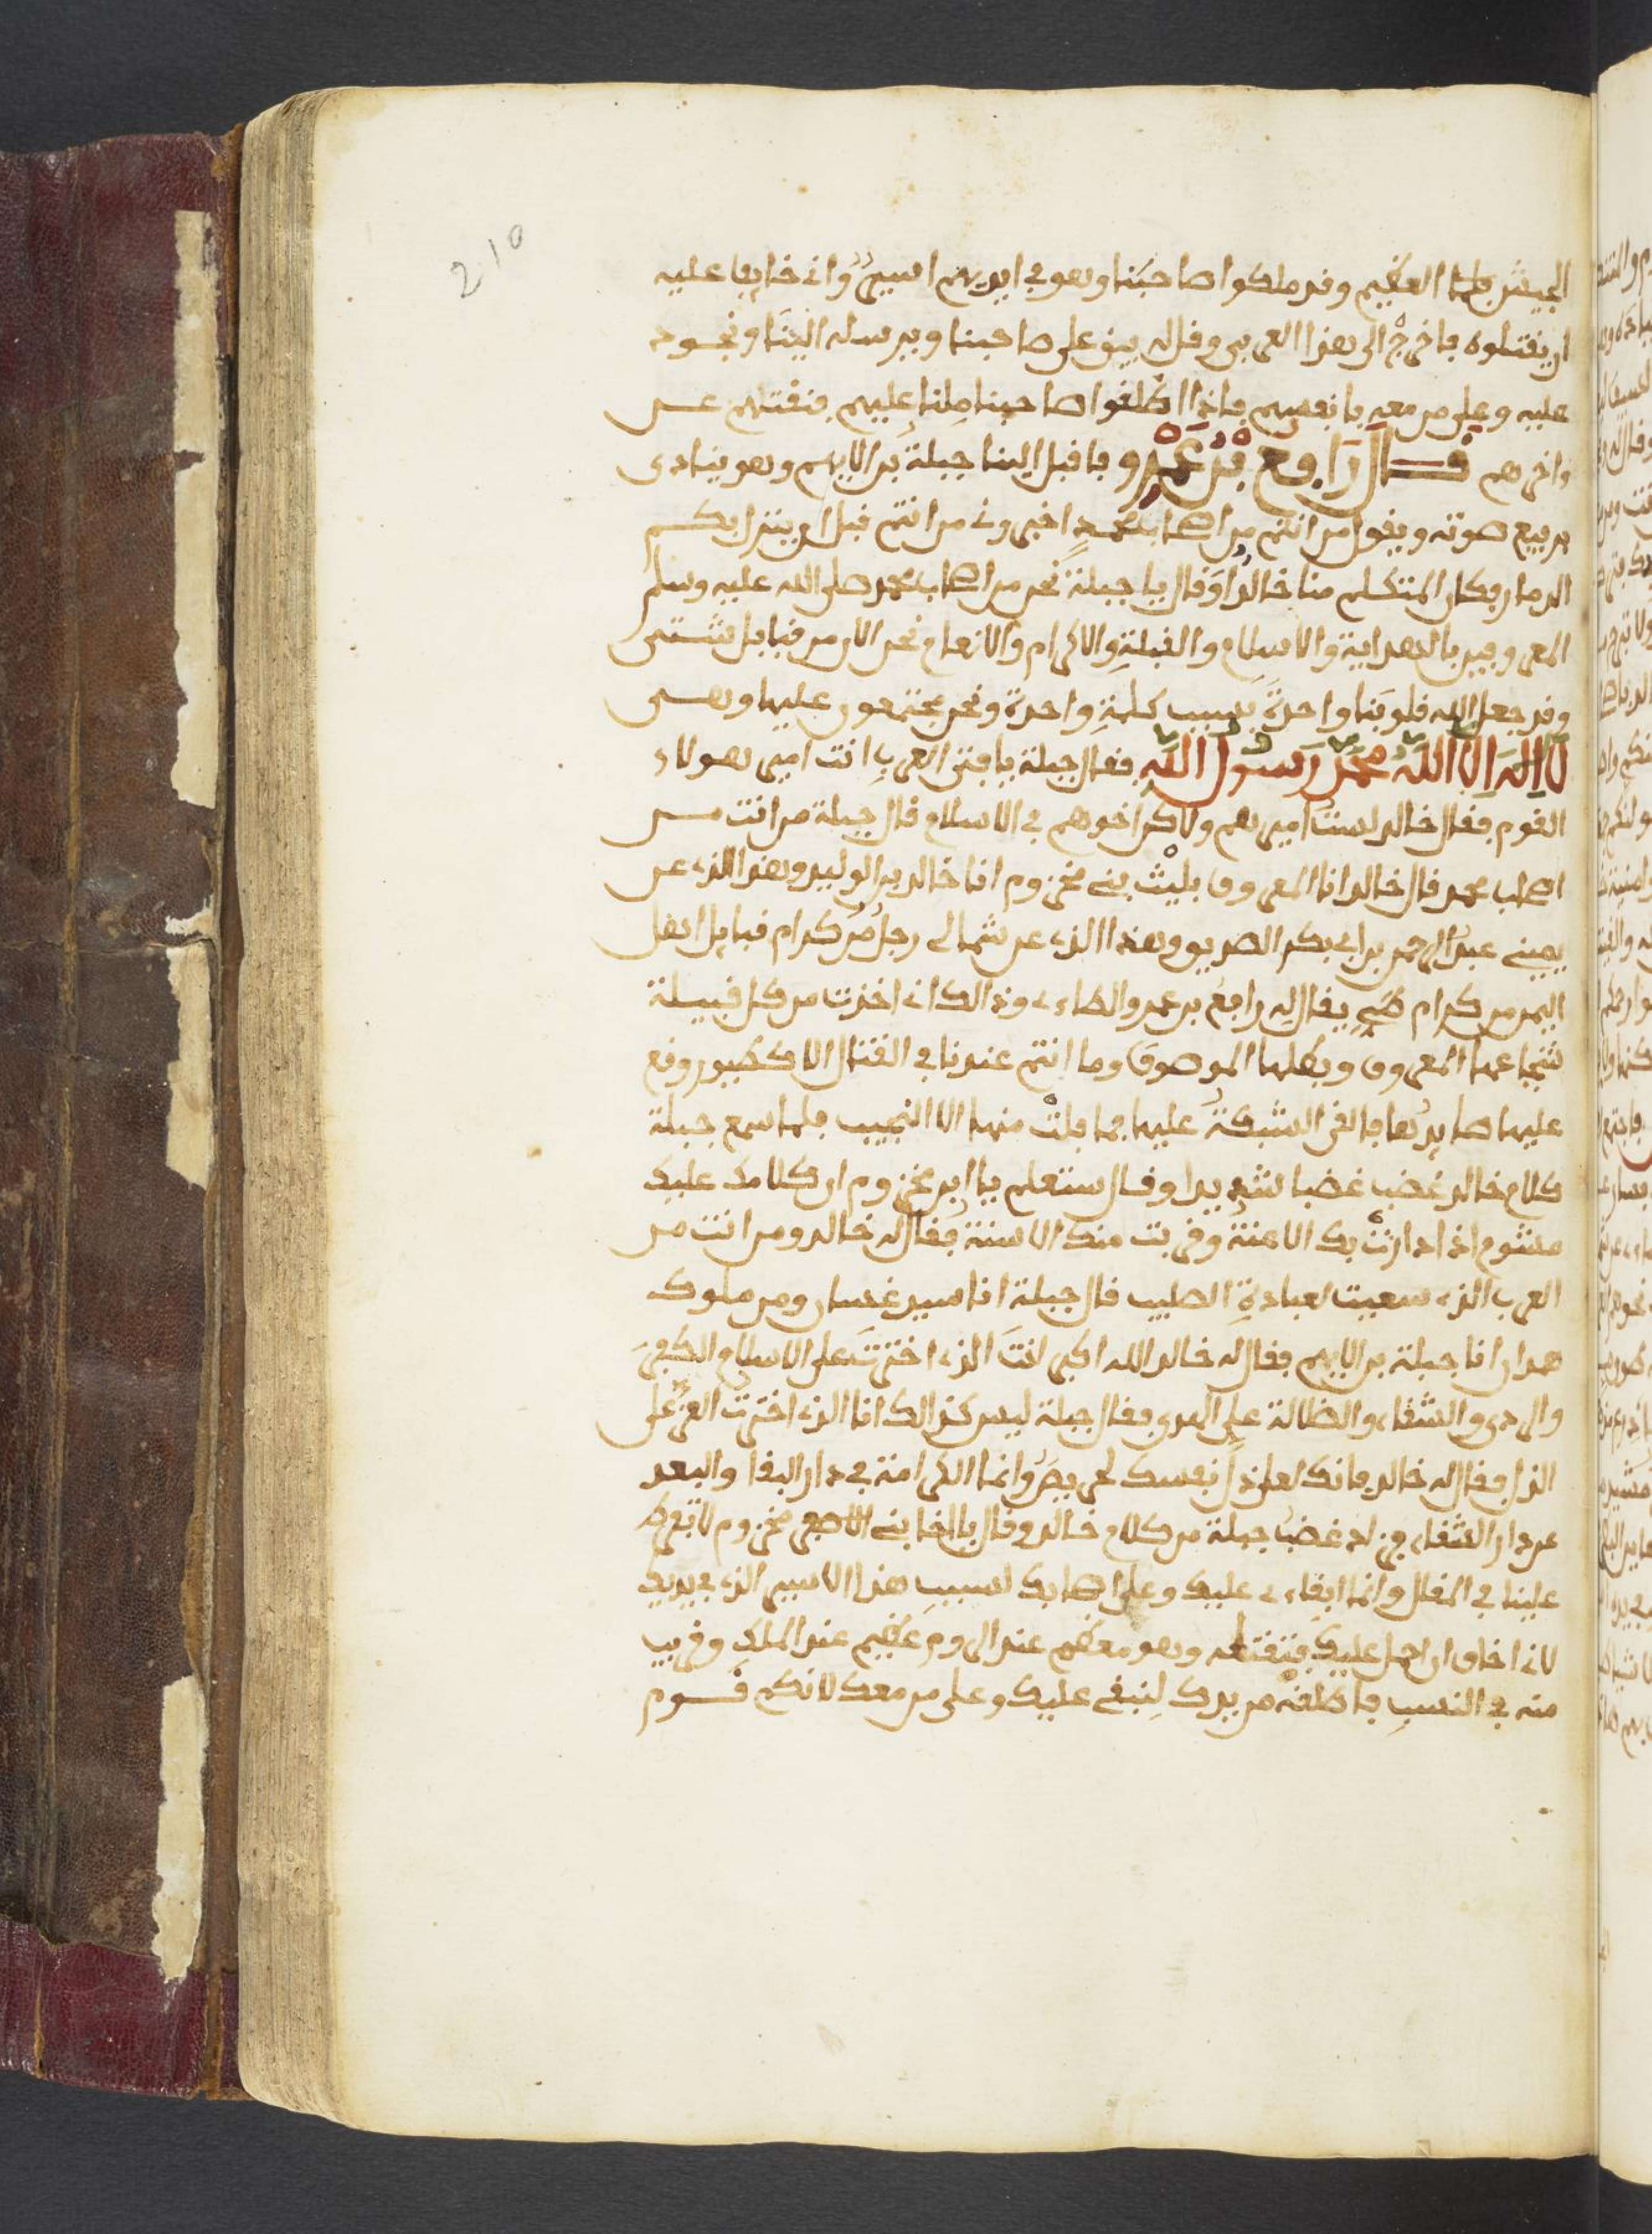 210
الجيش فلما العظيم وقد ملكوا صاحبنا وهو في ايديهم اسير واني خايفا عليه
ان يقتلوه فاخرج الى هذا العربي وقل له يبق على صاحبنا ويرسله الينا ونجود
عليه وعلى من معه بانفسهم فاذا اطلقوا صاحبنا ملنا عليهم فنقتلهم عن
ءاخرهم قال رافع بن عمرو فاقبل الينا جبلة بن الايهم وهو ينادى
برفيع صوته ويقول من انتم من اصحاب محمد اخبروني من انتم قبل ان ينزل بكم
الدمار فكان المتكلم منا خالدا وقال يا جبلة نحن من اصحاب محمد صلى الله عليه وسلم
المعروفين بالهداية والاسلام والقبلة والاكرام والانعام نحن الان من قبايل شتى
وقد جعل الله قلوبنا واحدة بسبب كلمة واحدة ونحن مجتمعون عليها وهى
لا اله الا الله محمد رسول الله فقال جبلة يا فتى العرب انت امير هولاء
القوم فقال خالد لست اميرهم ولاكن اخوهم في الاسلام قال جبلة من انت من
اصحاب محمد قال خالد انا المعروف بليث بني مخزوم انا خالد بن الوليد وهذا الذي عن
يميني عبد الرحمن بن ابي بكر الصديق وهذا الذي عن شمالي رجل من كرام قبايل اهل
اليمن من كرام طي يقال له رافع بن عمرو الطاءي وذالك اني اخذت من كل قبيلة
شجاعها المعروف وبطلها الموصوف وما انتم عندنا في القتال الا كطيور وقع
عليها صايدها فالقى الشبكة عليها فما فلت منها الا النجيب فلما سمع جبلة
كلام خالد غضب غضبا شديدا وقال ستعلم يا ابن مخزوم ان كلامك عليك
مشوم اذا دارت بك الاعنة وقربت منك الاسنة فقال له خالد ومن انت من
العرب الذي سعيت لعبادة الصليب قال جبلة انا سيد غسان ومن ملوك
همدان انا جبلة بن الايهم فقال له خالد الله اكبر انت الذي اخترت على الاسلام الكفر
والردى والشقاء والضلالة على الهدى فقال جبلة ليس كذالك انا الذي اخترت العز على
الذل فقال له خالد فانك لعلى ذل نفسك لحريص وانما الكرامة في دار البقا والبعد
عن دار الشقاء فزاد غضب جبلة من كلام خالد وقال يا اخا بني مخزوم لا تفرط
علينا في المقال وانما ابقاءي عليك وعلى اصحابك لسبب هذا الاسير الذي في يديك
لاني اخاف ان احمل عليك فتقتله وهو معظم عند الروم عظيم عند الملك وقريب
منه في النسب فاطلقه من يدك لنبقي عليك وعلى من معك لانكم قوم